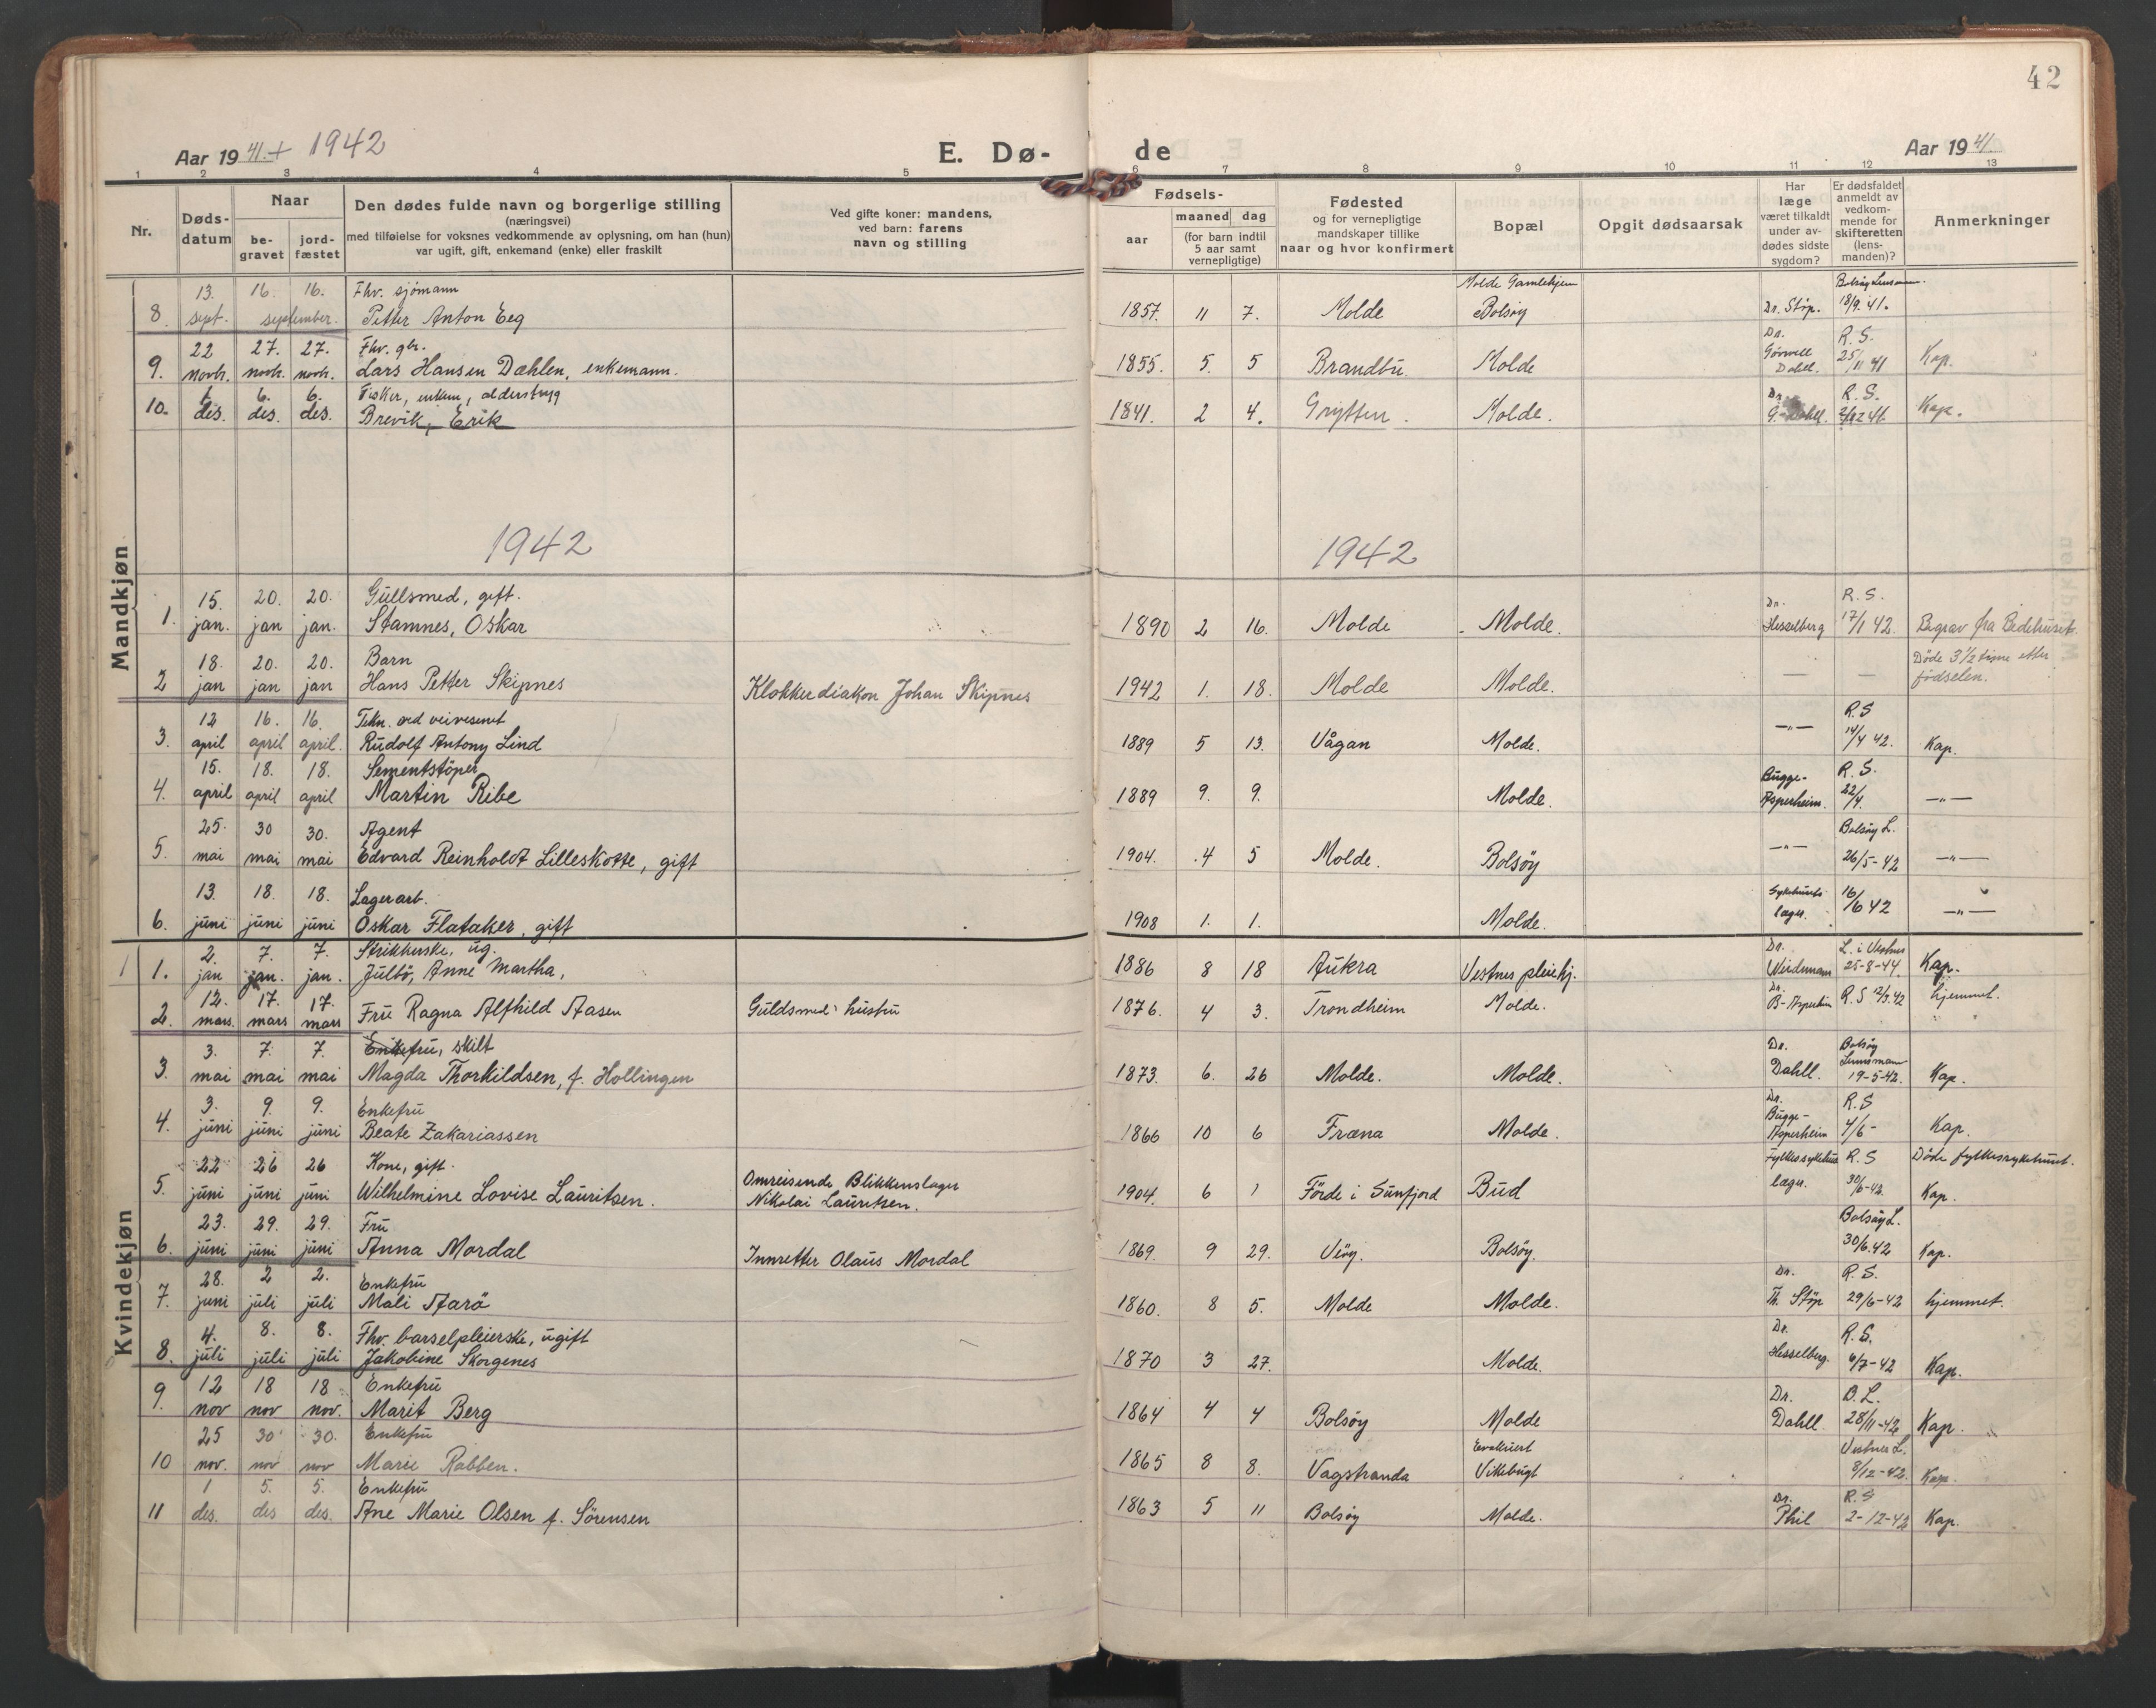 42
Aar 19 41. + 1942
E. Dø- de
Aar 19 41.
1 2 3 4 5 6 7 8 9 10 11 12 13
Nr.
Døds-
datum
Naar
be-
gravet
jord-
fæstet
Den dødes fulde navn og borgerlige stilling
(næringsvei)
med tilføielse for voksnes vedkommende av oplysning, om han (hun)
var ugift, gift, enkemand (enke) eller fraskilt
Ved gifte koner: mandens,
ved barn: farens
navn og stilling
Fødsels-
aar
maaned dag
(for barn indtil
5 aar samt
vernepligtige)
Fødested
og for vernepligtige
mandskaper tillike
naar og hvor konfirmert
Bopæl
Opgit dødsaarsak
Har
læge
været tilkaldt
under av-
dødes sidste
sygdom?
Er dødsfaldet
anmeldt av
vedkom-
mende for
skifteretten
(lens-
manden)?
Anmerkninger
Mandkjøn
13. 16. 16. Fhv. sjömann Molde Gamlehjem Bolsöy Lensmann.
8. sept. september. Petter Anton Eeg 1857. 11 7. Molde Bolsöy Dr. Stöp. 18/9. 41.
22 27. 27. Fhv. gbr. Dr. R. S.
9. novb. novb. novb. Lars Hansen Dæhlen, enkemann. 1855. 5. 5 Brandbu Molde Dahll. 25/11 41 Kap.
6. 6. Fisker, enkem, alderstryg Dr. R. S.
10. des. des. des. Brevik, Erik 1841. 2 4. Grytten. Molde. G. Dahll. Kap.
1942 1942
15. 20. 20. Gullsmed, gift. Dr. R. S.
1. jan. jan jan. Stamnes, Oskar 1890 2 16. Molde Molde. Hesselberg 17/1 42. Begrav fra Bedehuset.
18. 20. 20. Barn Döde 3 1/2 time etter
2 jan jan jan Hans Petter Skipnes Klokkerdiakon Johan Skipnes 1942 1. 18. Molde Molde. — — födselen.
12 16. 16. Tekn. ved veivesenet R. S
3. april april april. Rudolf Antony Lind 1889 5 13. Vågan Molde. —"— 14/4 42. Kap.
15. 18. 18. Sementstöper Bugge- R. S.
4. april april april Martin Ribe 1889 9. 9. Molde. Asperheim. 22/4. —"—
25. 30 30. Agent Bolsöy L.
5. mai mai mai Edvard Reinholdt Lilleskotte, gift 1904. 4 5 Molde. Bolsöy —"— 26/5-42 —"—
13. 18. 18. Lagerarb. Sykehusets
6. juni juni juni Oskar Flataker, gift 1908 1. 1. Molde. læger. 16/6 42 —"—
Kvindekjøn
2. 7. 7. Strikkerske, ug. Dr. L. i Vestnes
1 1. jan jan. jan. Julbö, Anne Martha, 1886 8 18 Aukra Vestnes pleiehj. 25-8-44. Kap.
12. 17. 17. Dr.
2. mars. mars mars Fru Ragna Alfhild Aasen Guldsmed's hustru 1876. 4 3. Trondheim Molde. B-Asperheim R. S 12/3.42 hjemmet.
3. 7. 7. Enkefru, skilt Dr. Bolsöy Lensmann
3. mai mai mai Magda Thorkildsen, f. Hollingen 1873. 6. 26 Molde. Molde. Dahll. 19-5-42. Kap.
3. 9. 9. Enkefru Dr. Bugge- R. S
4. juni juni juni Beate Zakariassen 1866 10 6 Fræna Molde. Asperheim 4/6- Kap.
22 26 26 Kone, gift. Omreisende Blikkenslager Fylkessykehus R. S Döde fylkessykehuset.
5. juni juni juni Wilhelmine Lovise Lauritsen. Nikolai Lauritsen. 1904. 6 1 Förde i Sunfjord Bud læger. 30/6-42. Kap.
23. 29. 29. Fru Bolsöy L.
6. juni juni juni Anna Mordal Innretter Olaus Mordal 1869. 9 29. Veöy. Bolsöy. 30/6.42 Kap.
28. 2 2. Enkefru Dr. R. S.
7. juni juli juli Mali Aarö 1860. 8 5. Molde Molde. Th. Stöp 29/6-42 hjemmet.
4. 8. 8. Fhv. barselpleierske, ugift Dr. R. S.
8. juli juli juli Jakobine Skorgenes 1870 3 27. Molde. Hesselberg. 6/7-42 Kap.
12 18 18 Enkefru Dr. B. L.
9. nov nov nov. Marit Berg 1864 4 4 Bolsöy Molde Dahll 28/11-42 Kap.
25 30 30. Enkefru Evakuert Vestnes L.
10 nov. nov nov Marie Rabben. 1865 8 8. Vagstranda Vikebugt 8/12-42. Kap.
1 5. 5. Enkefru Dr. R. S
11 des. des des. Ane Marie Olsen f. Sörensen 1863 5 11 Bolsöy Molde. Phil 2-12-42 Kap.